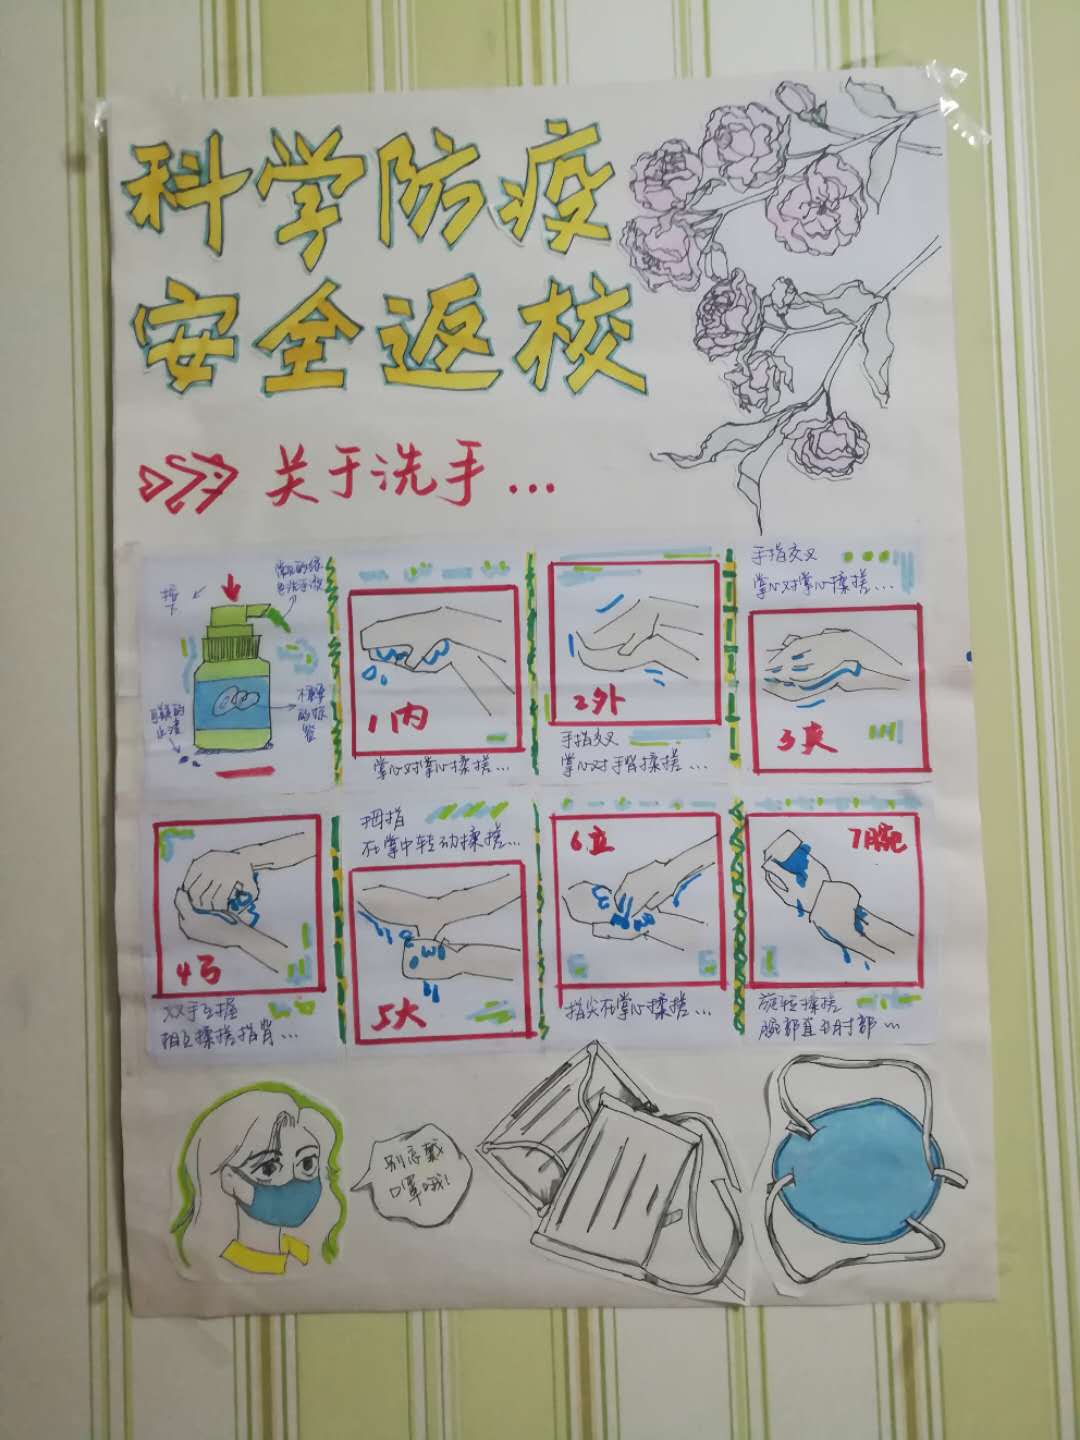 科学防疫
安全返校
关于洗手...
按
下
常见的绿
色洗手液
不重要
的标签
可疑的
尘渣
1内
掌心对掌心揉搓...
2外
手指交叉
掌心对手背揉搓...
手指交叉
掌心对掌心揉搓...
3夹
4弓
双手互握
相互揉搓指背...
拇指
在掌中转动揉搓...
5大
6立
指尖在掌心揉搓...
7腕
旋转揉搓
腕部直至肘部...
别忘戴
口罩哦!